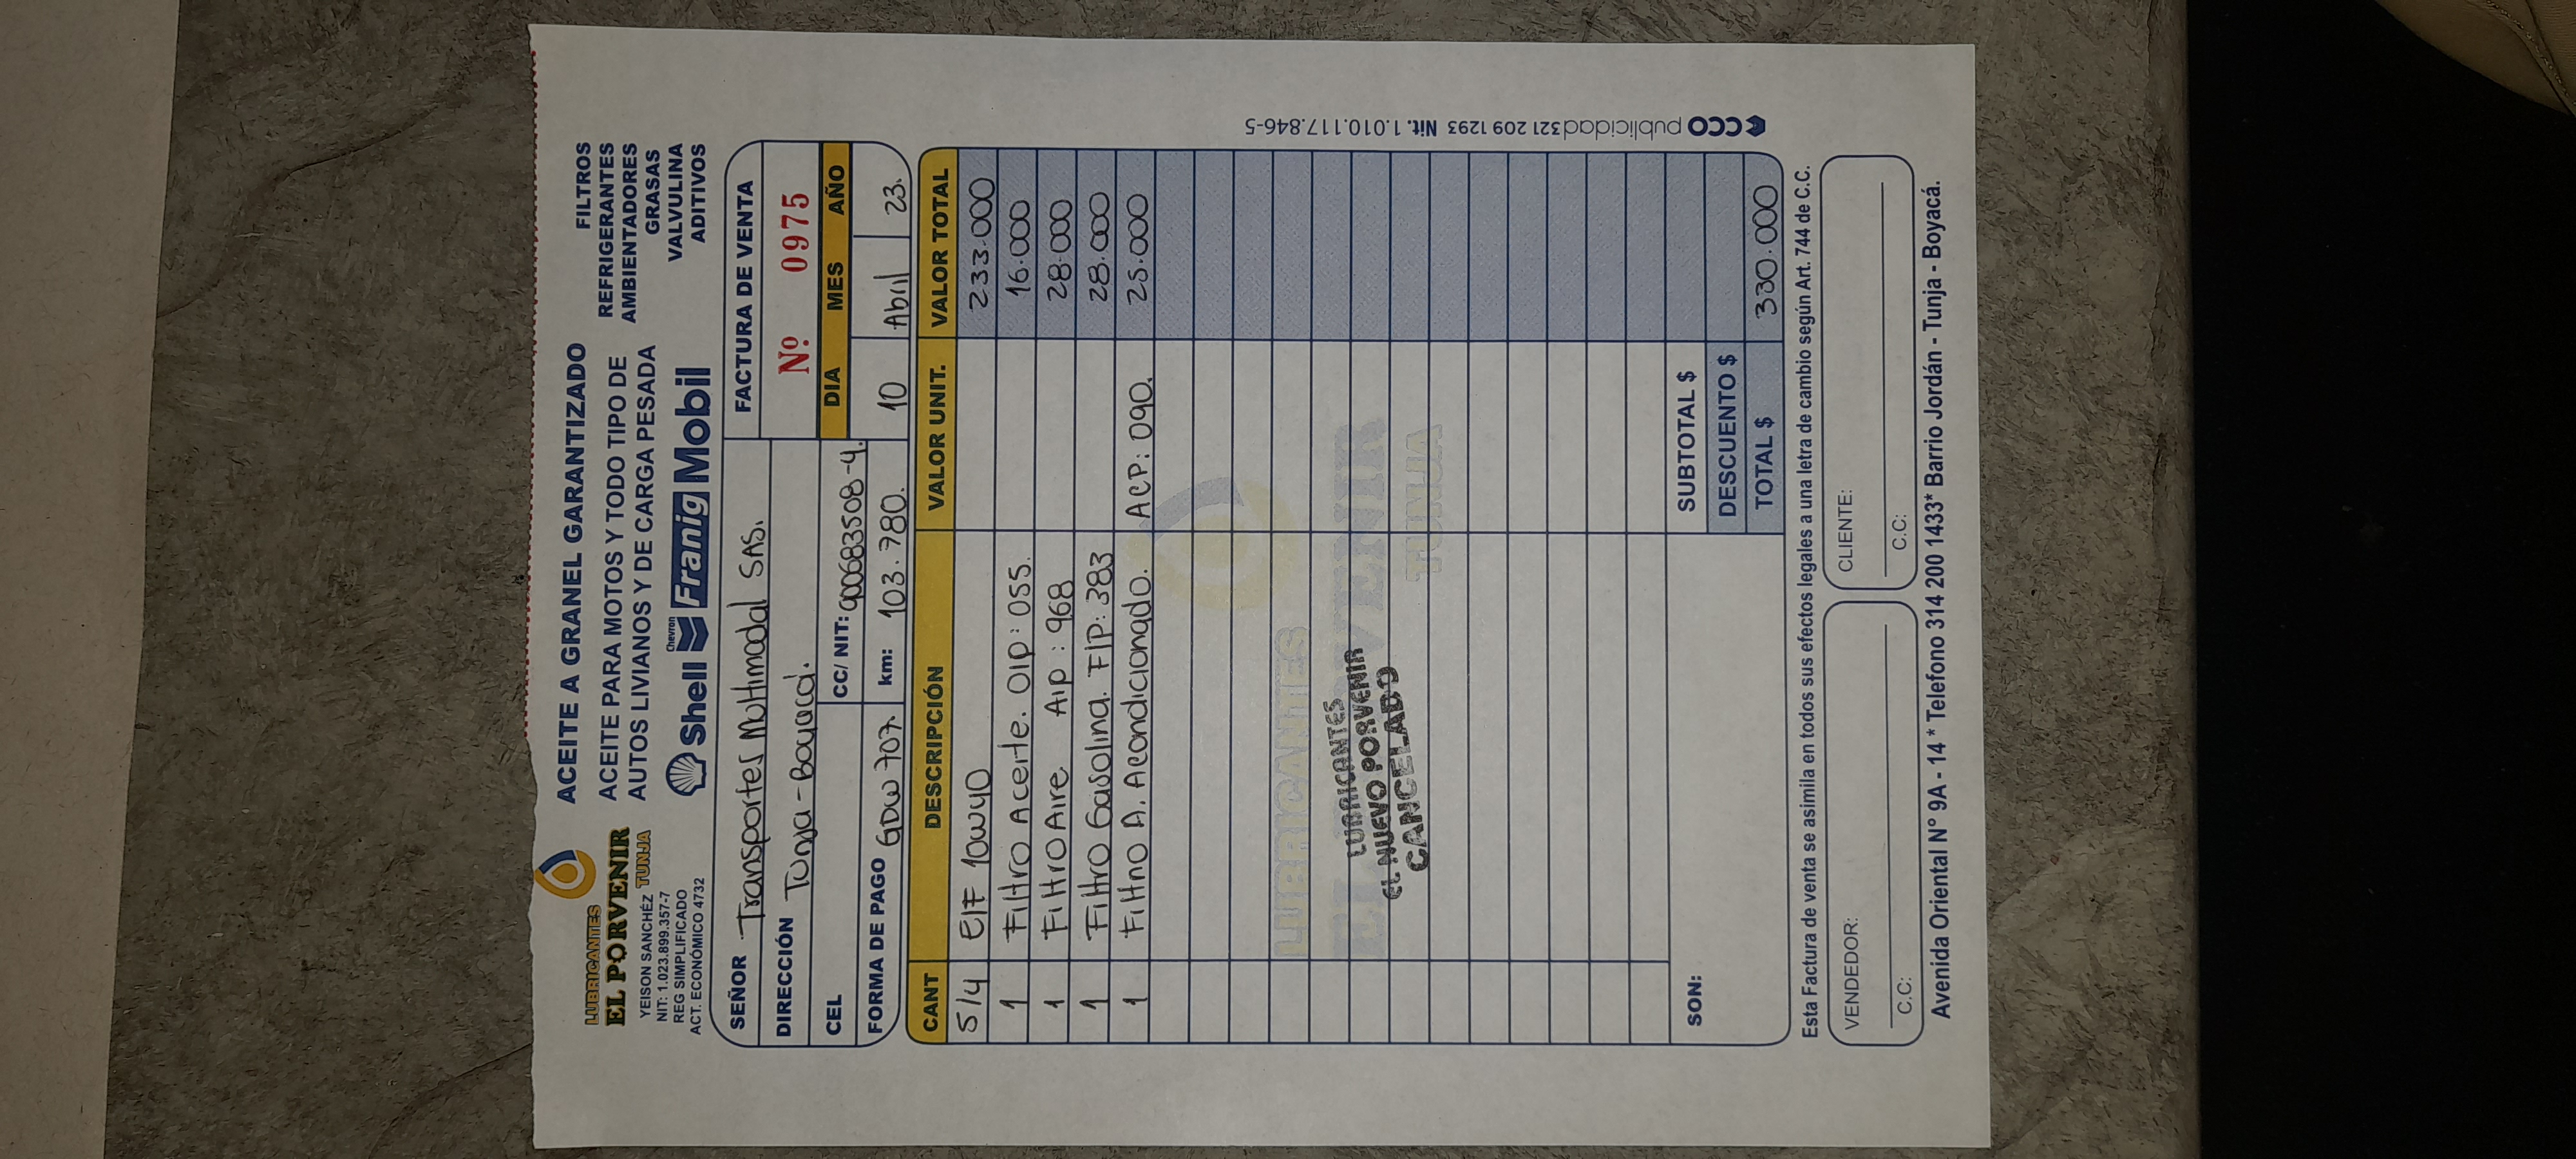 LUBRICANTES
EL PORVENIR
TUNJA
YEISON SANCHÉZ
NIT: 1.023.899.357-7
REG SIMPLIFICADO
ACT. ECONÓMICO 4732
ACEITE A GRANEL GARANTIZADO
ACEITE PARA MOTOS Y TODO TIPO DE
AUTOS LIVIANOS Y DE CARGA PESADA
Shell Chevron Franig Mobil
FILTROS
REFRIGERANTES
AMBIENTADORES
GRASAS
VALVULINA
ADITIVOS
SEÑOR Transportes Multimodal SAS.
DIRECCIÓN Tunja-Boyacá.
CEL CC/ NIT: 900683508-4.
FORMA DE PAGO GDW 707. km: 103.780.
FACTURA DE VENTA
Nº 0975
DIA MES AÑO
10 Abril 23.
CANT DESCRIPCIÓN VALOR UNIT. VALOR TOTAL
5/4 Elf 10W40 233.000
1 Filtro Aceite. OIP: 055. 16.000
1 Filtro Aire. AIP: 968 28.000
1 Filtro Gasolina. FIP: 383 28.000
1 Filtro A. Acondicionado. ACP: 090. 25.000
LUBRICANTES
EL PORVENIR
TUNJA
LUBRICANTES
EL NUEVO PORVENIR
CANCELADO
SON:
SUBTOTAL $
DESCUENTO $
TOTAL $ 330.000
Esta Factura de venta se asimila en todos sus efectos legales a una letra de cambio según Art. 744 de C.C.
VENDEDOR:
C.C:
CLIENTE:
C.C:
Avenida Oriental N° 9A - 14 * Telefono 314 200 1433* Barrio Jordán - Tunja - Boyacá.
CCO publicidad 321 209 1293 Nit. 1.010.117.846-5